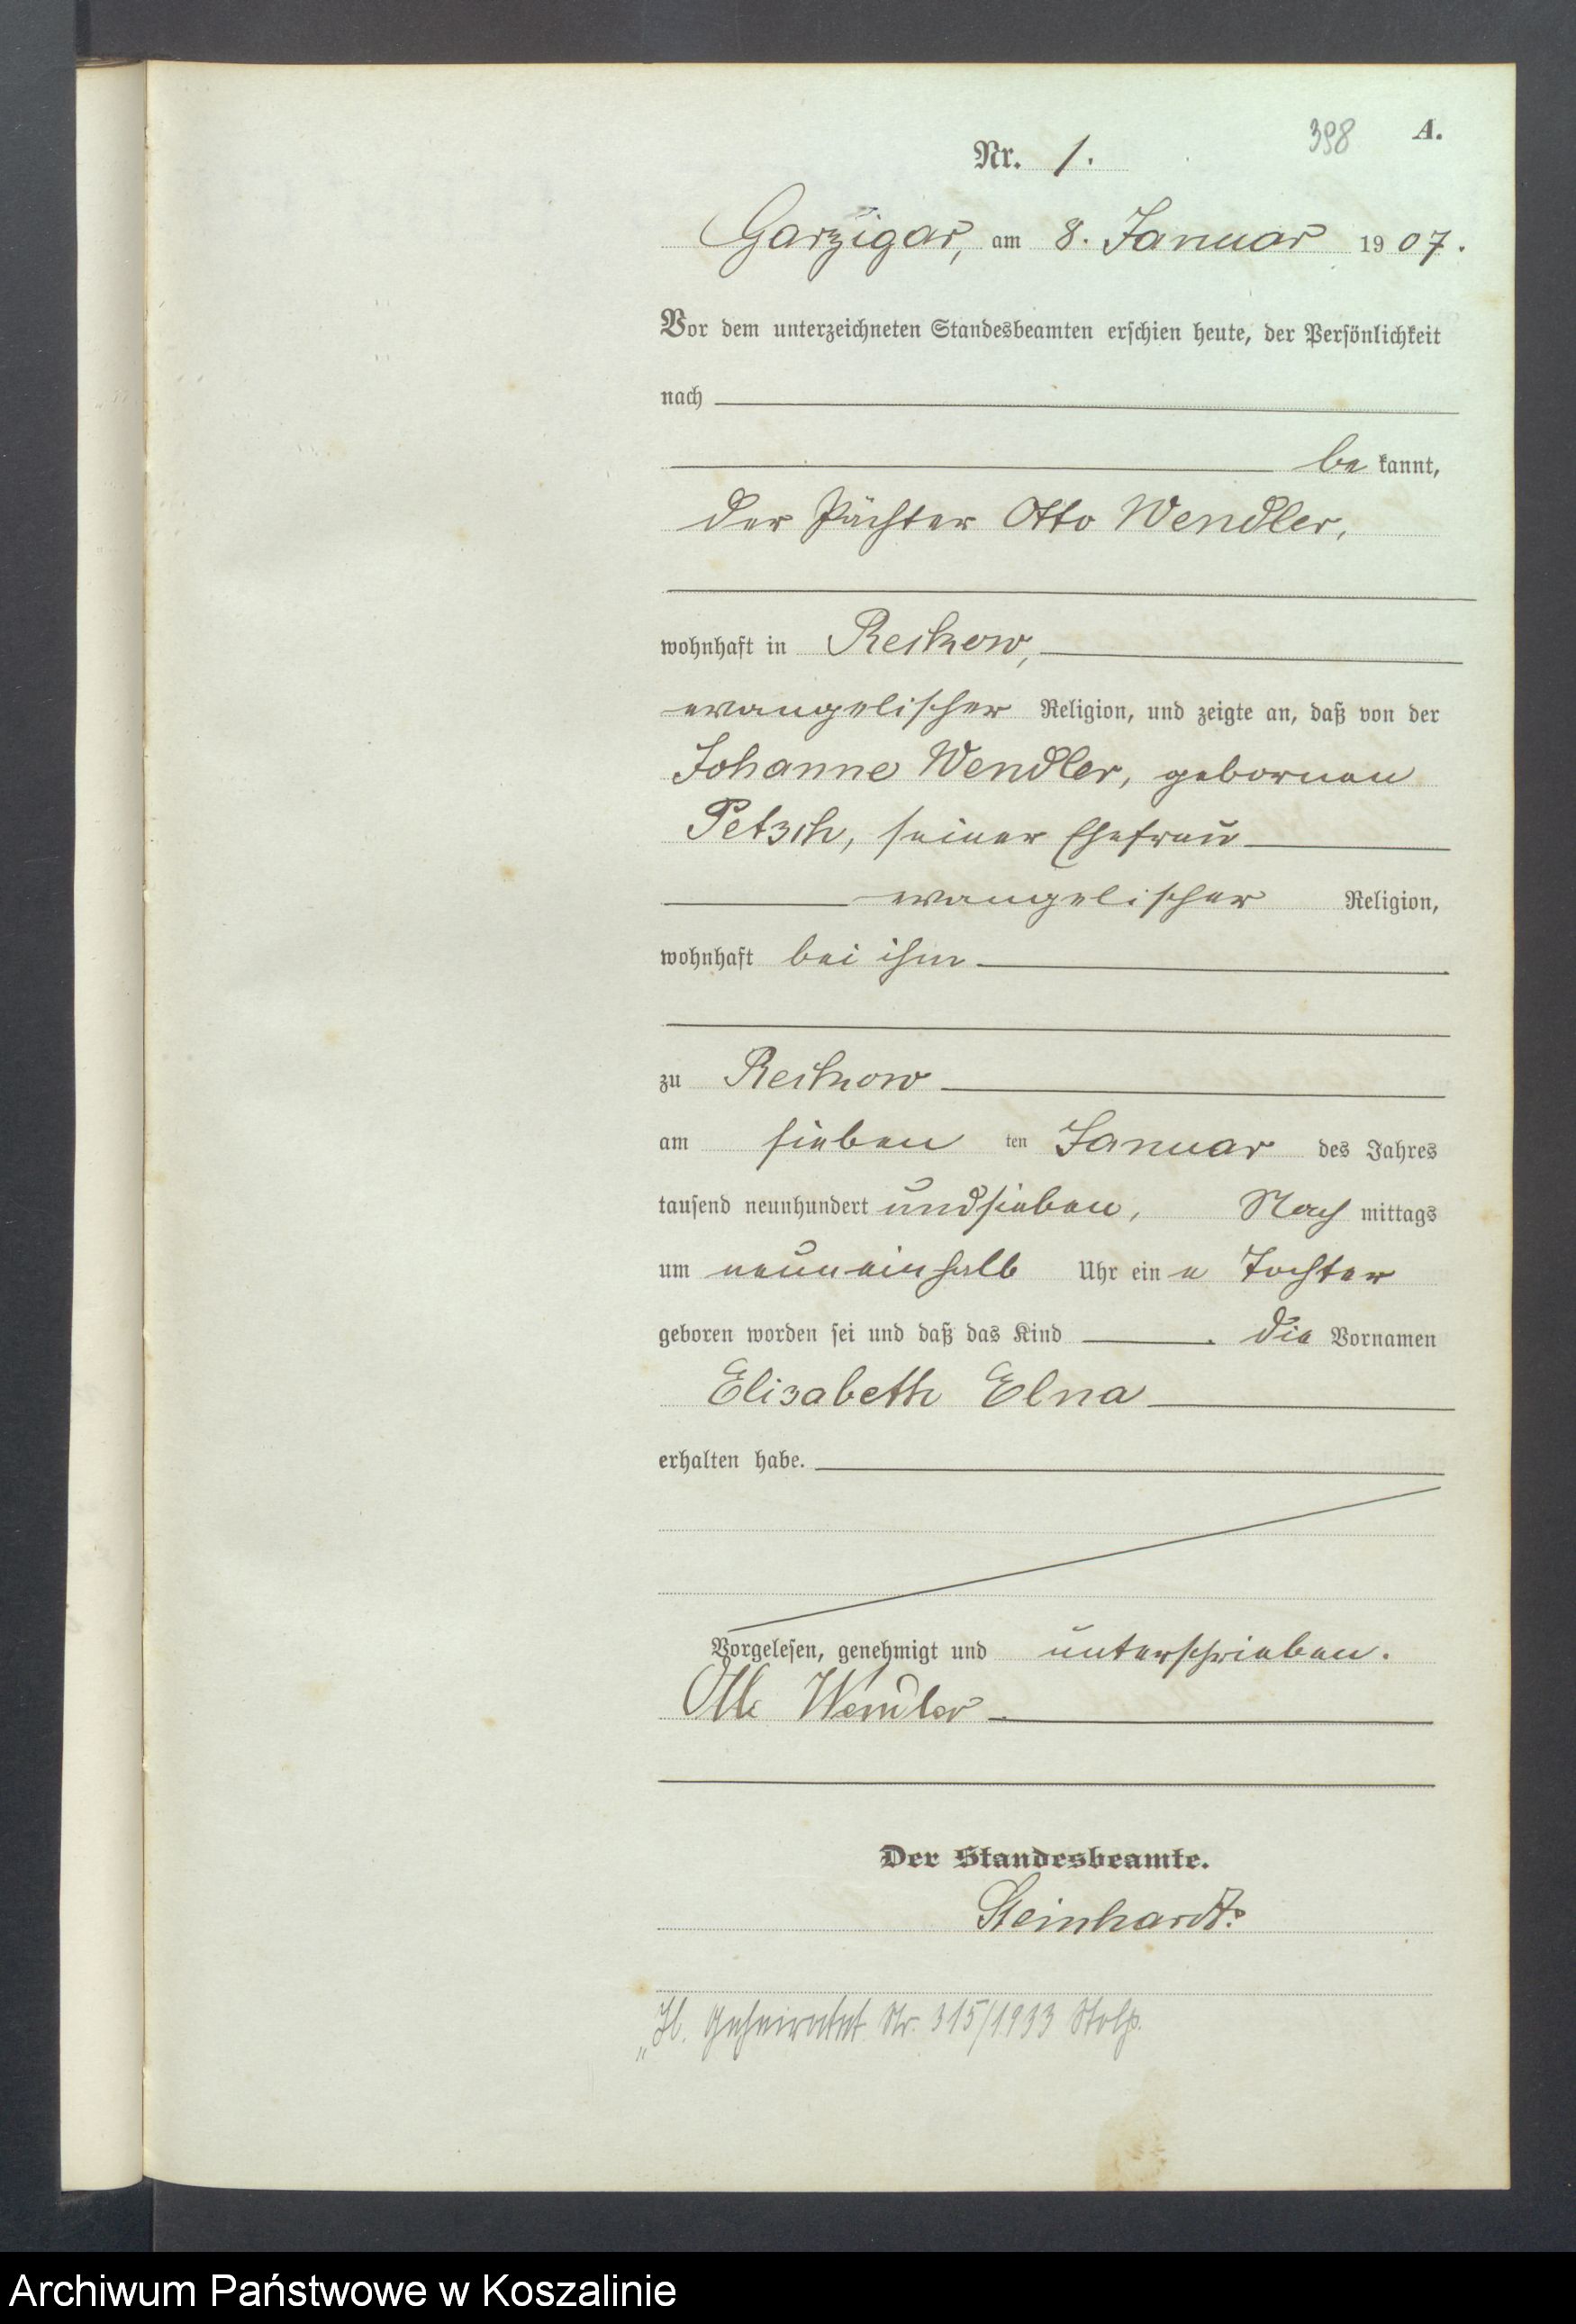 398 A.
Nr. 1.
Garzigar, am 8. Januar 1907.
Vor dem unterzeichneten Standesbeamten erschien heute, der Persönlichkeit
nach
bekannt,
der Pächter Otto Wendler,
wohnhaft in Reckow,
evangelischer Religion, und zeigte an, daß von der
Johanne Wendler, gebornen
Petsch, seiner Ehefrau
evangelischer Religion,
wohnhaft bei ihm
zu Reckow
am sieben ten Januar des Jahres
tausend neunhundert und sieben, Nach mittags
um neuneinhalb Uhr eine Tochter
geboren worden sei und daß das Kind die Vornamen
Elisabeth Elna
erhalten habe.
Vorgelesen, genehmigt und unterschrieben.
Otto Wendler
Der Standesbeamte.
Steinhardt.
Geheiratet Nr. 315/1933 Stolp.
Archiwum Państwowe w Koszalinie